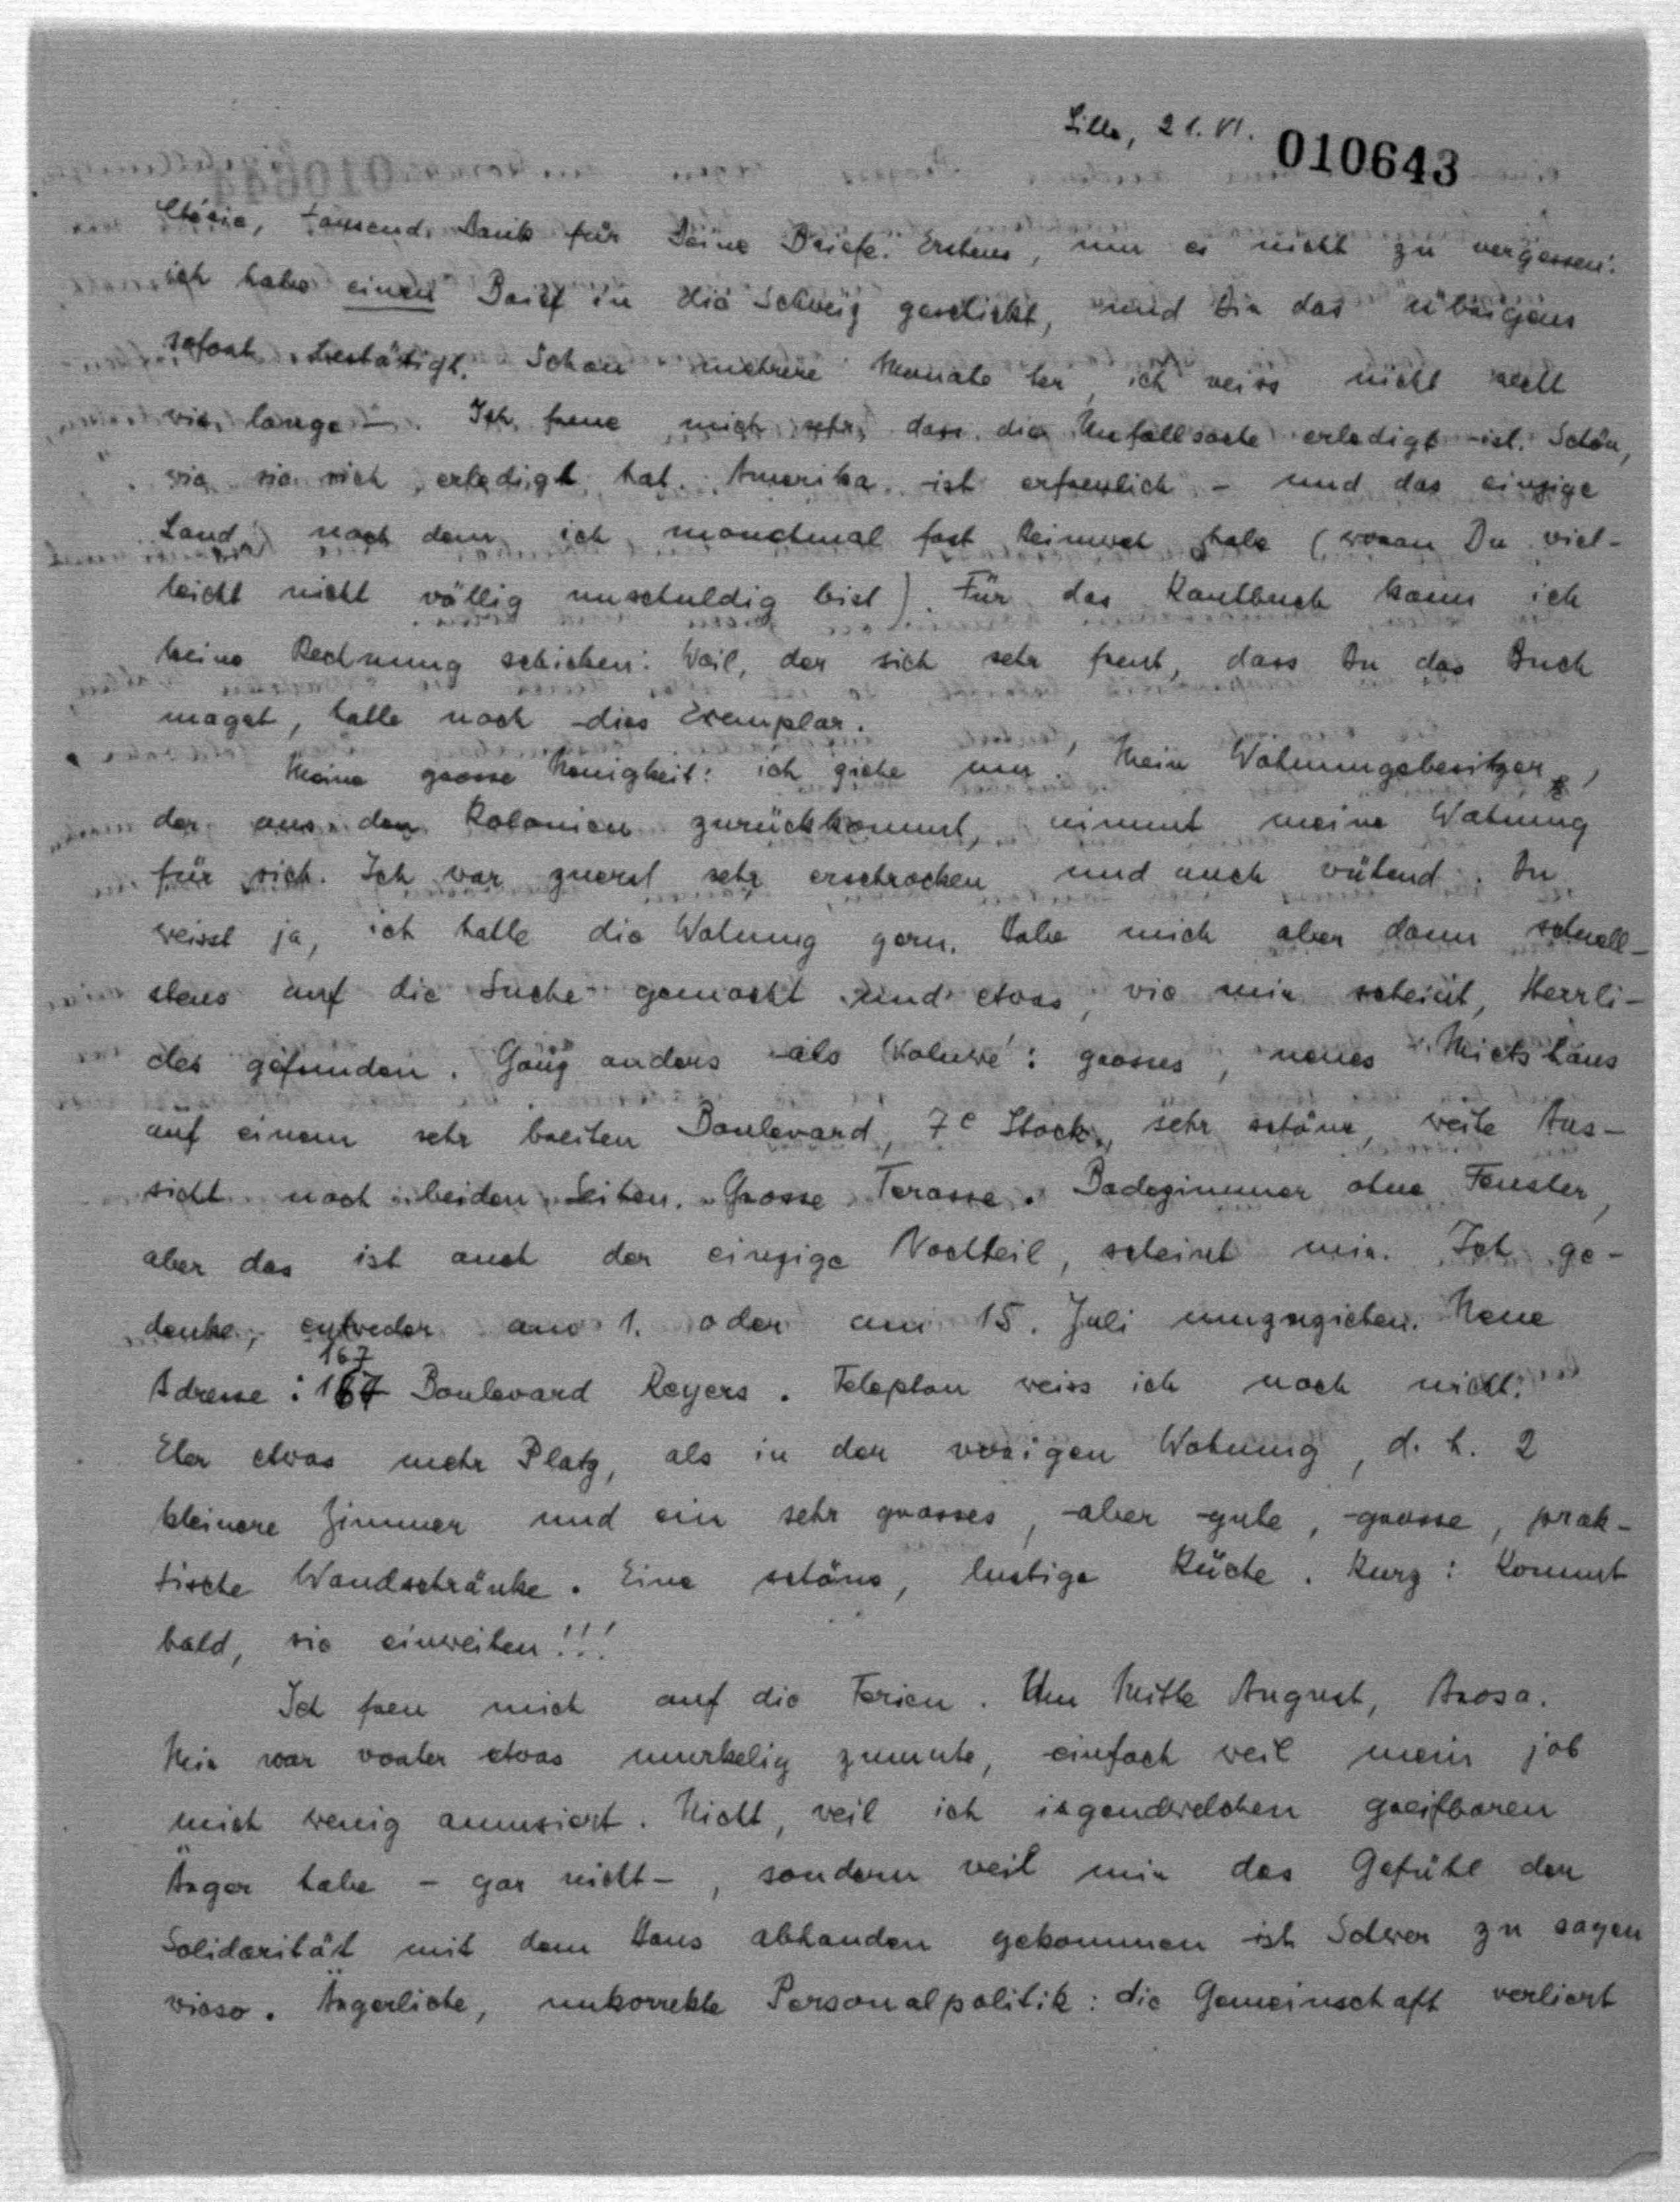 Lille, 21. VI.
010643
Chérie, tausend Dank für Deine Briefe. Erstens, um es nicht zu vergessen:
ich habe einen Brief in die Schweiz geschickt, und Dir das übrigens
sofort bestätigt. Schon mehrere Monate her, ich weiss nicht recht
wie lange –. Ich freue mich sehr, dass die Unfallsache erledigt ist. Schön,
wie sie sich erledigt hat. Amerika ist erfreulich – und das einzige
Land, nach dem ich manchmal fast Heimweh habe (woran Du viel-
leicht nicht völlig unschuldig bist). Für das Kantbuch kann ich
keine Rechnung schicken: Weil, der sich sehr freut, dass Du das Buch
magst, hatte noch dies Exemplar.
Meine grosse Neuigkeit: ich ziehe um. Mein Wohnungsbesitzer,
der aus den Kolonien zurückkommt, nimmt meine Wohnung
für sich. Ich war zuerst sehr erschrocken und auch wütend. Du
weisst ja, ich hatte die Wohnung gern. Habe mich aber dann schnell-
stens auf die Suche gemacht und etwas, wie mir scheint, Herrli-
ches gefunden. Ganz anders als : grosses, neues Mietshaus
auf einem sehr breiten Boulevard, 7e Stock, sehr schöne, weite Aus-
sicht nach beiden Seiten. Grosse Terasse. Badezimmer ohne Fenster,
aber das ist auch der einzige Nachteil, scheint mir. Ich ge-
denke, entweder am 1. oder am 15. Juli umzuziehen. Neue
167
Adresse: 167 Boulevard Reyers. Telephon weiss ich noch nicht.
Eher etwas mehr Platz, als in der vorigen Wohnung, d. h. 2
kleinere Zimmer und ein sehr grosses, aber gute, grosse, prak-
tische Wandschränke. Eine schöne, lustige Küche. Kurz: Kommt
bald, sie einweihen!!!
Ich freu mich auf die Ferien. Um Mitte August, Arosa.
Mir war vorher etwas murkelig zumute, einfach weil mein job
mich wenig amusiert. Nicht, weil ich irgendwelchen greifbaren
Ärger habe – gar nicht –, sondern weil mir das Gefühl der
Solidarität mit dem Haus abhanden gekommen ist. Schwer zu sagen
wieso. Ärgerliche, unkorrekte Personalpolitik: die Gemeinschaft verliert